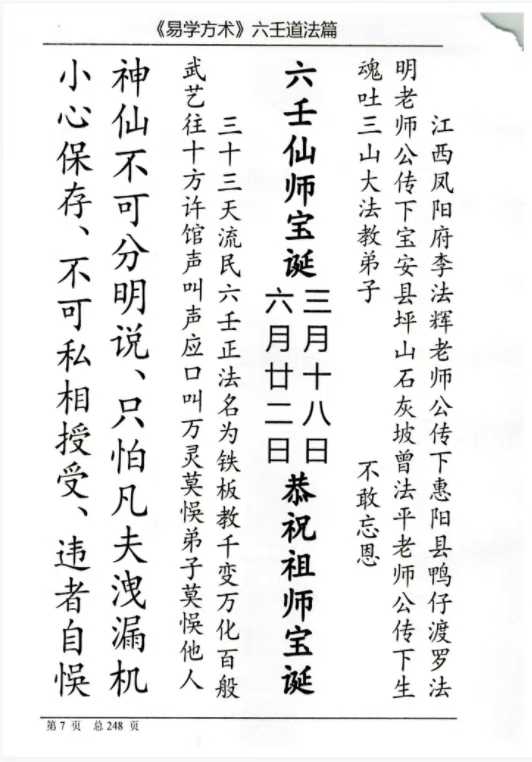 《易学方术》六壬道法篇
江西凤阳府李法辉老师公传下惠阳县鸭仔渡罗法
明老师公传下宝安县坪山石灰坡曾法平老师公传下生
魂吐三山大法教弟子 不敢忘恩
六壬仙师宝诞
三月十八日
六月廿二日
恭祝祖师宝诞
三十三天流民六壬正法名为铁板教千变万化百般
武艺往十方许馆声叫声应口叫万灵莫悮弟子莫悮他人
神仙不可分明说、只怕凡夫洩漏机
小心保存、不可私相授受、违者自悮
第 7 页 总 248 页